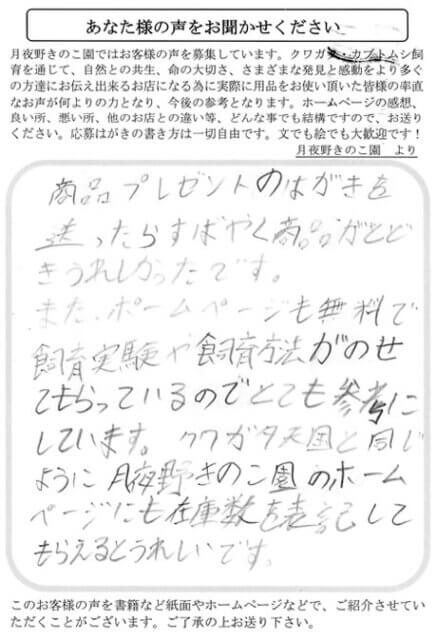 あなた様の声をお聞かせください
月夜野きのこ園ではお客様の声を募集しています。クワガタ・カブトムシ飼
育を通じて、自然との共生、命の大切さ、さまざまな発見と感動をより多く
の方達にお伝え出来るお店になる為に実際に用品をお使い頂いた皆様の率直
なお声が何よりの力となり、今後の参考となります。ホームページの感想、
良い所、悪い所、他のお店との違い等、どんな事でも結構ですので、お送り
ください。応募はがきの書き方は一切自由です。文でも絵でも大歓迎です！
月夜野きのこ園　より
商品プレゼントのはがきを
送ったらすばやく商品がとど
きうれしかったです。
また、ホームページも無料で
飼育実験や飼育方法がのせ
てもらっているのでとても参考に
しています。クワガタ天国と同じ
ように月夜野きのこ園のホーム
ページにも在庫数を表記して
もらえるとうれしいです。
このお客様の声を書籍など紙面やホームページなどで、ご紹介させてい
ただくことがございます。ご了承の上お送り下さい。